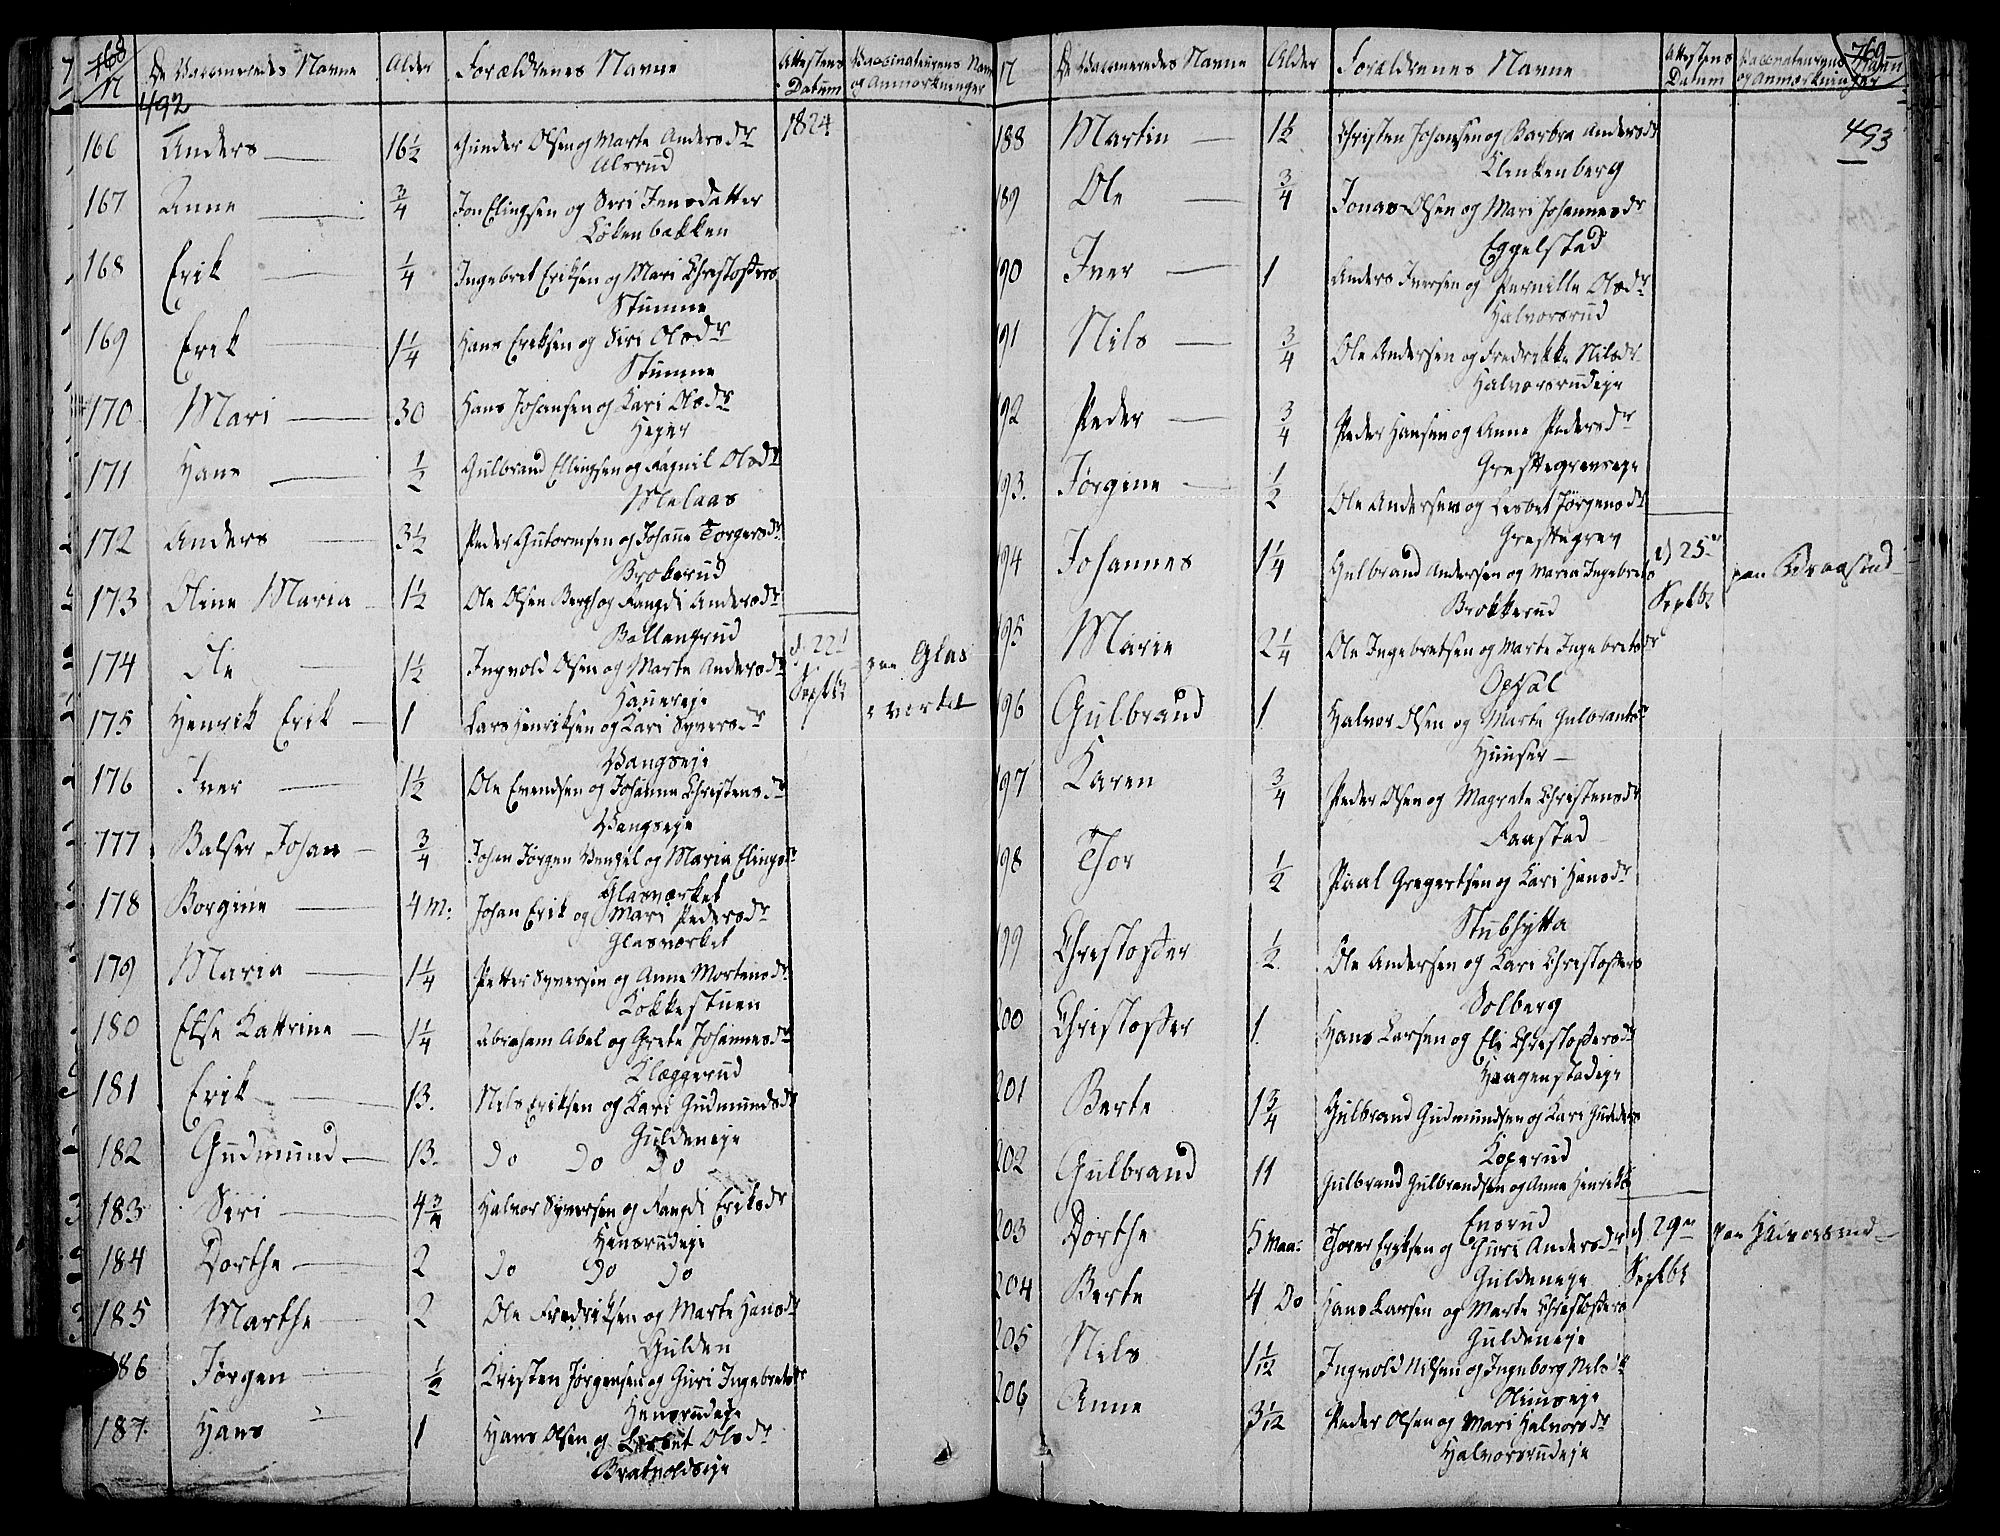 768
N
De Vaccineredes Navne
Alder
Forældrenes Navne
Attestens Datum
Vaccinateurens Navn og Anmærkninger
492
1824
166 Anders 16½ Gunder Olsen og Marte Andersdr
Alsrud
167 Anne ¾ Jon Elingsen og Siri Jensdatter
Lökenbakken
168 Erik ¼ Ingebret Eriksen og Mari Christoffers
Stumne
169 Erik 1¼ Hans Eriksen og Siri Olsdr
Stumne
170 Mari 30 Hans Johansen og Kari Olsdr
Hejer
171 Hans ½ Gulbrand Ellingsen og Ragnil Olsdr
Melaas
172 Anders 3½ Peder Gutormsen og Johanne Torgersdr
Broberud
173 Oline Maria 1½ Ole Olsen Bergh og Rangdi Andersdr
Ballangrud
174 Ole 1½ Ingvold Olsen og Marte Andersdr d. 22 Septbr paa Glas
værket
175 Henrik Erik 1 Lars Henriksen og Kari Syversdr
Vangseje
176 Iver 1½ Ole Evendsen og Johanne Christensdr
Vangseje
177 Balser Johan ¾ Johan Jörgen Wengel og Maria Elingsdr
Glasværket
178 Borgine 4 M: Johan Erik og Mari Pedersdr
Glasværket
179 Maria 1¼ Petter Syversen og Anne Mortensdr
Kokkestuen
180 Else Kattrine 1¼ Abraham Abel og Grete Johannesdr
Klæggerud
181 Erik 13. Nils Eriksen og Kari Gudmundsdr
Guldeneje
182 Gudmund 13. Do Do Do
183 Siri 4¾ Halvor Syversen og Rangdi Eriksdr
Hensrudeje
184 Dorthe 2 Do Do Do
185 Marthe 2 Ole Fredriksen og Marte Hansdr
Gulden
186 Jörgen ½ Kristen Jörgensen og Guri Ingebretsdr
Hensrudeje
187. Hans 1 Hans Olsen og Lisbet Olsdr
Bratvoldseje
769
N
De Vaccineredes Navne
Alder
Forældrenes Navne
Attestens Datum
Vaccinateurens Navn og Anmærkninger
493
188 Martin 1½ Christen Johansen og Barbra Andersdr
Klenkenberg
189 Ole ¾ Jonas Olsen og Mari Johannesdr
Eggelstad
190 Iver 1 Anders Iversen og Pernille Olsdr
Halvorsrud
191 Nils ¾ Ole Andersen og Fredrikke Nilsdr
Halvorsrudeje
192 Peder ¾ Peder Hansen og Anne Pedersdr
Grettegrenseje
193. Jörgine ½ Ole Andersen og Lisbet Jörgensdr
194 Johannes 1¼ Gulbrand Andersen og Maria Ingebrets d 25 Septbr paa
Brokkerud
195 Marie 2¼ Ole Ingebretsen og Marte Ingebretsdr
Opsal
196 Gulbrand 1 Halvor Olsen og Marte Gulbrandsdr
Hunser
197 Karen ¾ Peder Olsen og Magrete Christensdr
Faastad
198 Thor ½ Paal Gregertsen og Kari Hansdr
Stubhytta
199 Christoffer ½ Ole Andersen og Kari Christoffers
Solberg
200 Christoffer 1. Hans Larsen og Eli Christoffersdr
Haagenstadeje
201 Berte 1¾ Gulbrand Gudmundsen og Kari
Koperud
202 Gulbrand 11 Gulbrand Gulbrandsen og Anne Henriks
Ensrud
203 Dorthe 5 Maa: Thorer Eriksen og Guri Andersdr d 29 Septbr paa Halvorsrud
Guldeneje
204 Berte 4 Do Hans Larsen og Marte Christoffers
Guldeneje
205 Nils 1 1/12 Ingvold Nilsen og Ingeborg Nilsdr
Olimseje
206 Anne 3 1/12 Peder Olsen og Mari Halvorsdr
Halvorsrudeje